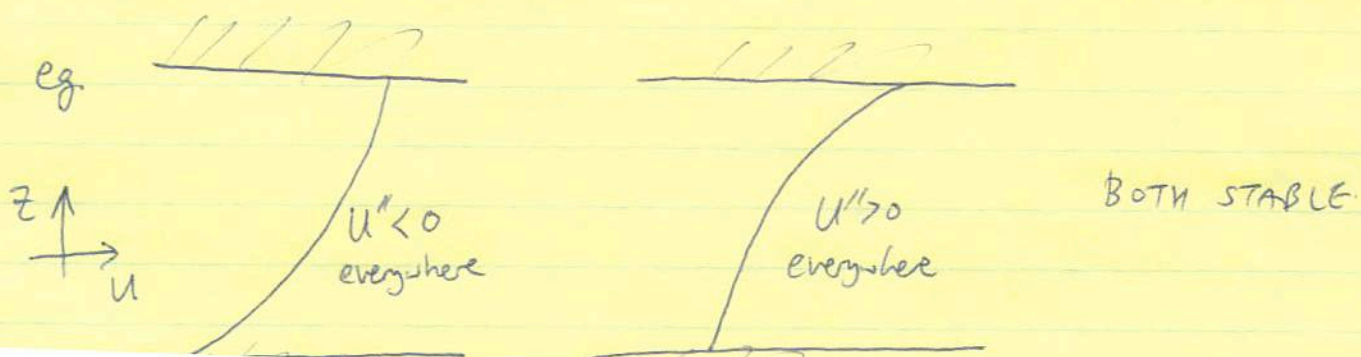 eg
Z
U
U'' < 0
everywhere
U'' > 0
everywhere
BOTH STABLE.